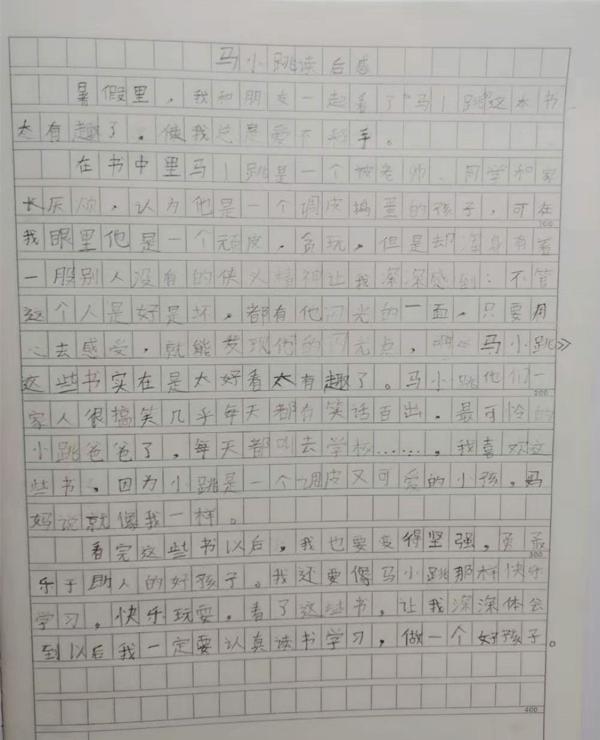 马小跳读后感
暑假里，我和朋友一起看了"马小跳"这本书
太有趣了。使我总是爱不释手。
在书中里马小跳是一个被老师、同学和家
长厌烦，认为他是一个调皮捣蛋的孩子，可在
200
我眼里他是一个顽皮，贪玩，但是却浑身有着
一股别人没有的侠义精神让我深深感到：不管
这个人是好是坏，都有他闪光的一面，只要用
心去感受，就能发现他的闪光点，《马小跳》
这些书实在是太好看太有趣了。马小跳他们一
家人很搞笑几乎每天都有笑话百出。最可怜的
小跳爸爸了，每天都叫去学校……，我喜欢这
些书，因为小跳是一个调皮又可爱的小孩。妈
妈说就像我一样。
看完这些书以后，我也要变得坚强，勇敢
300
乐于助人的好孩子。我还要像马小跳那样快乐
学习，快乐玩耍，看了这些书，让我深深体会
到以后我一定要认真读书学习，做一个好孩子。
400